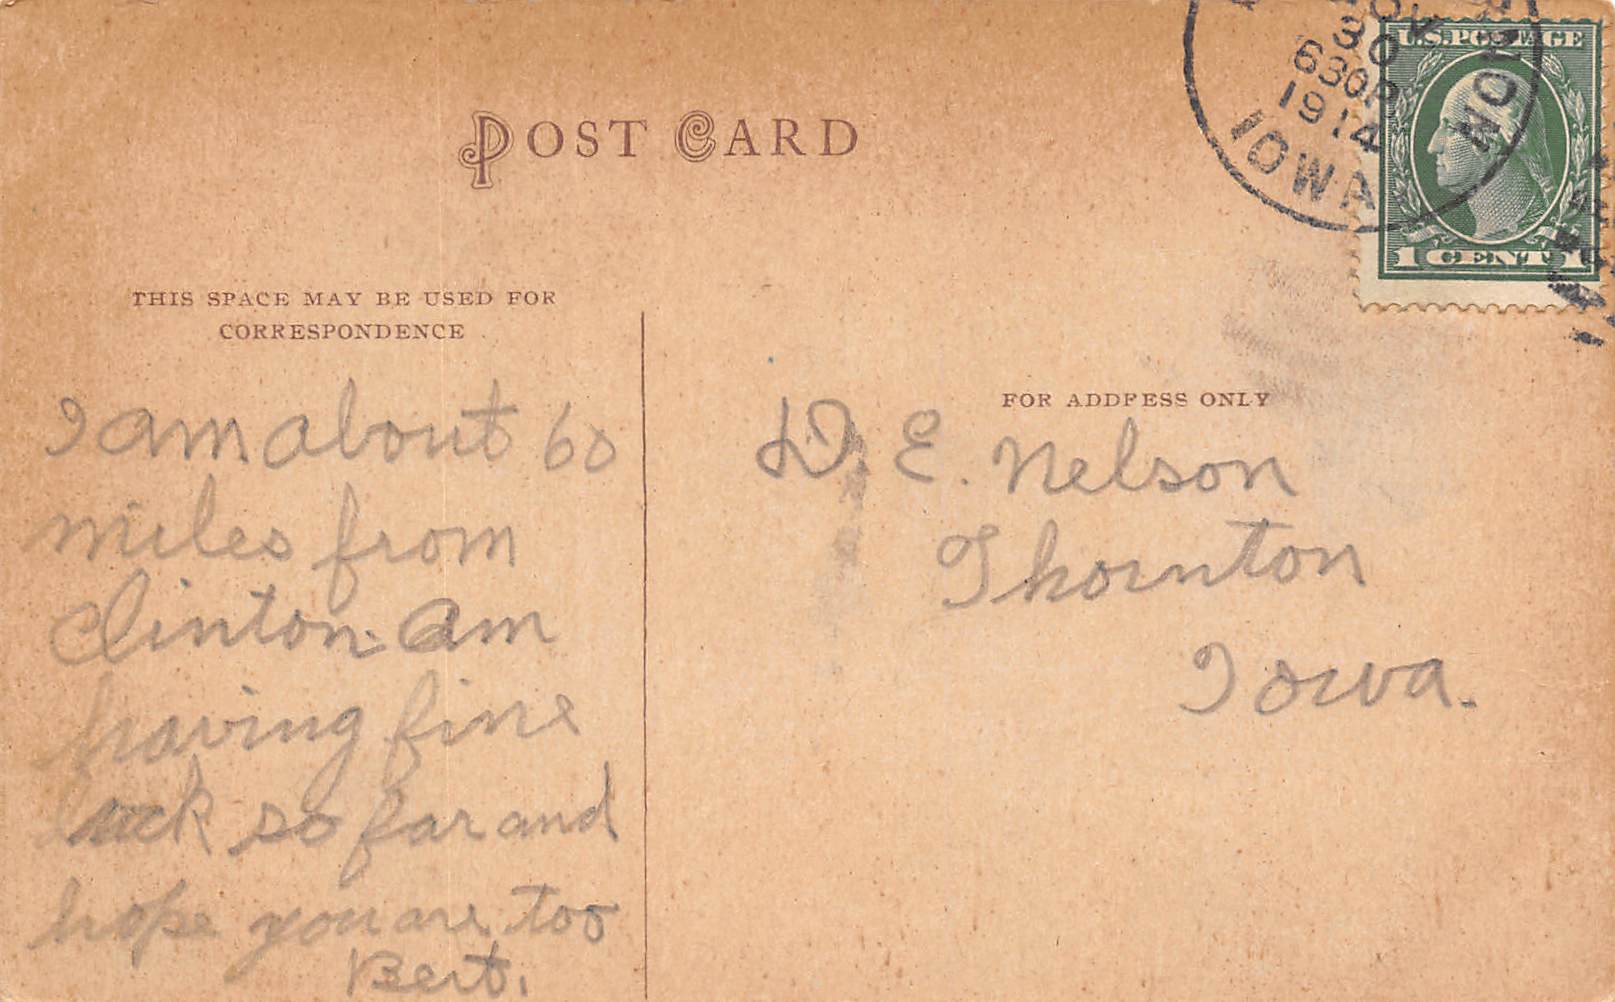 POST CARD
THIS SPACE MAY BE USED FOR
CORRESPONDENCE
I am about 60
miles from
Clinton. Am
having fine
luck so far and
hope you are too
Bert.
30
630P
1914
IOWA
U.S. POSTAGE
1 CENT 1
FOR ADDRESS ONLY
D. E. Nelson
Thornton
Iowa.